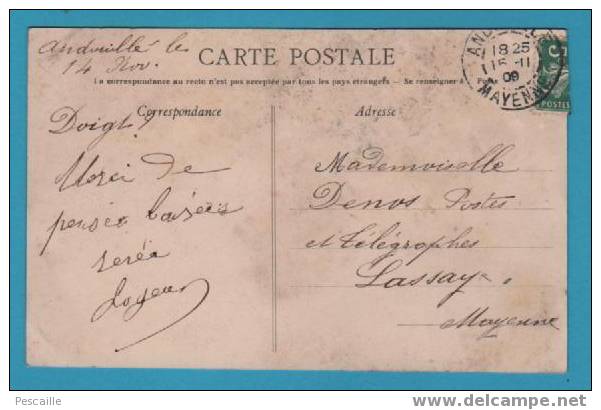 Andouillé le
14 Nov.
CARTE POSTALE
La correspondance au recto n'est pas acceptée par tous les pays étrangers. — Se renseigner à
Correspondance
Adresse
18 25
15 -11
09
MAYENNE
POSTES
Doigt !
Merci de
pensée baisers
Mademoiselle
Denos Postes
et Télégraphes
Lassay
Mayenne
Pescaille
delcampe.net